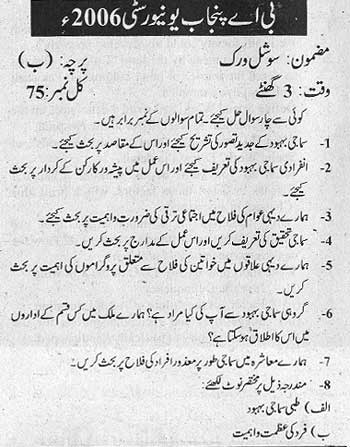 بی اے پنجاب یونیورسٹی 2006ء
مضمون: سوشل ورک پرچہ: (ب)
وقت: 3 گھنٹے کل نمبر: 75
کوئی سے چار سوال حل کیجئے۔ تمام سوالوں کے نمبر برابر ہیں۔
1- سماجی بہبود کے جدید تصور کی تشریح کیجئے اور اس کے مقاصد پر بحث کیجئے۔
2- انفرادی سماجی بہبود کی تعریف کیجئے اور اس عمل میں پیشہ ور کارکن کے کردار پر بحث
کیجئے۔
3- ہمارے دیہی عوام کی فلاح میں اجتماعی ترقی کی ضرورت و اہمیت پر بحث کیجئے۔
4- سماجی تحقیق کی تعریف کریں اور اس عمل کے مدارج پر بحث کریں۔
5- ہمارے دیہی علاقوں میں خواتین کی فلاح سے متعلق پروگراموں کی اہمیت پر بحث
کریں۔
6- گروہی سماجی بہبود سے آپ کی کیا مراد ہے؟ ہمارے ملک میں کس قسم کے اداروں
میں اس کا اطلاق ہو سکتا ہے؟
7- ہمارے معاشرہ میں سماجی طور پر معذور افراد کی فلاح پر بحث کریں۔
8- مندرجہ ذیل پر مختصر نوٹ لکھئے:
الف) طبی سماجی بہبود
ب) فرد کی عظمت و اہمیت